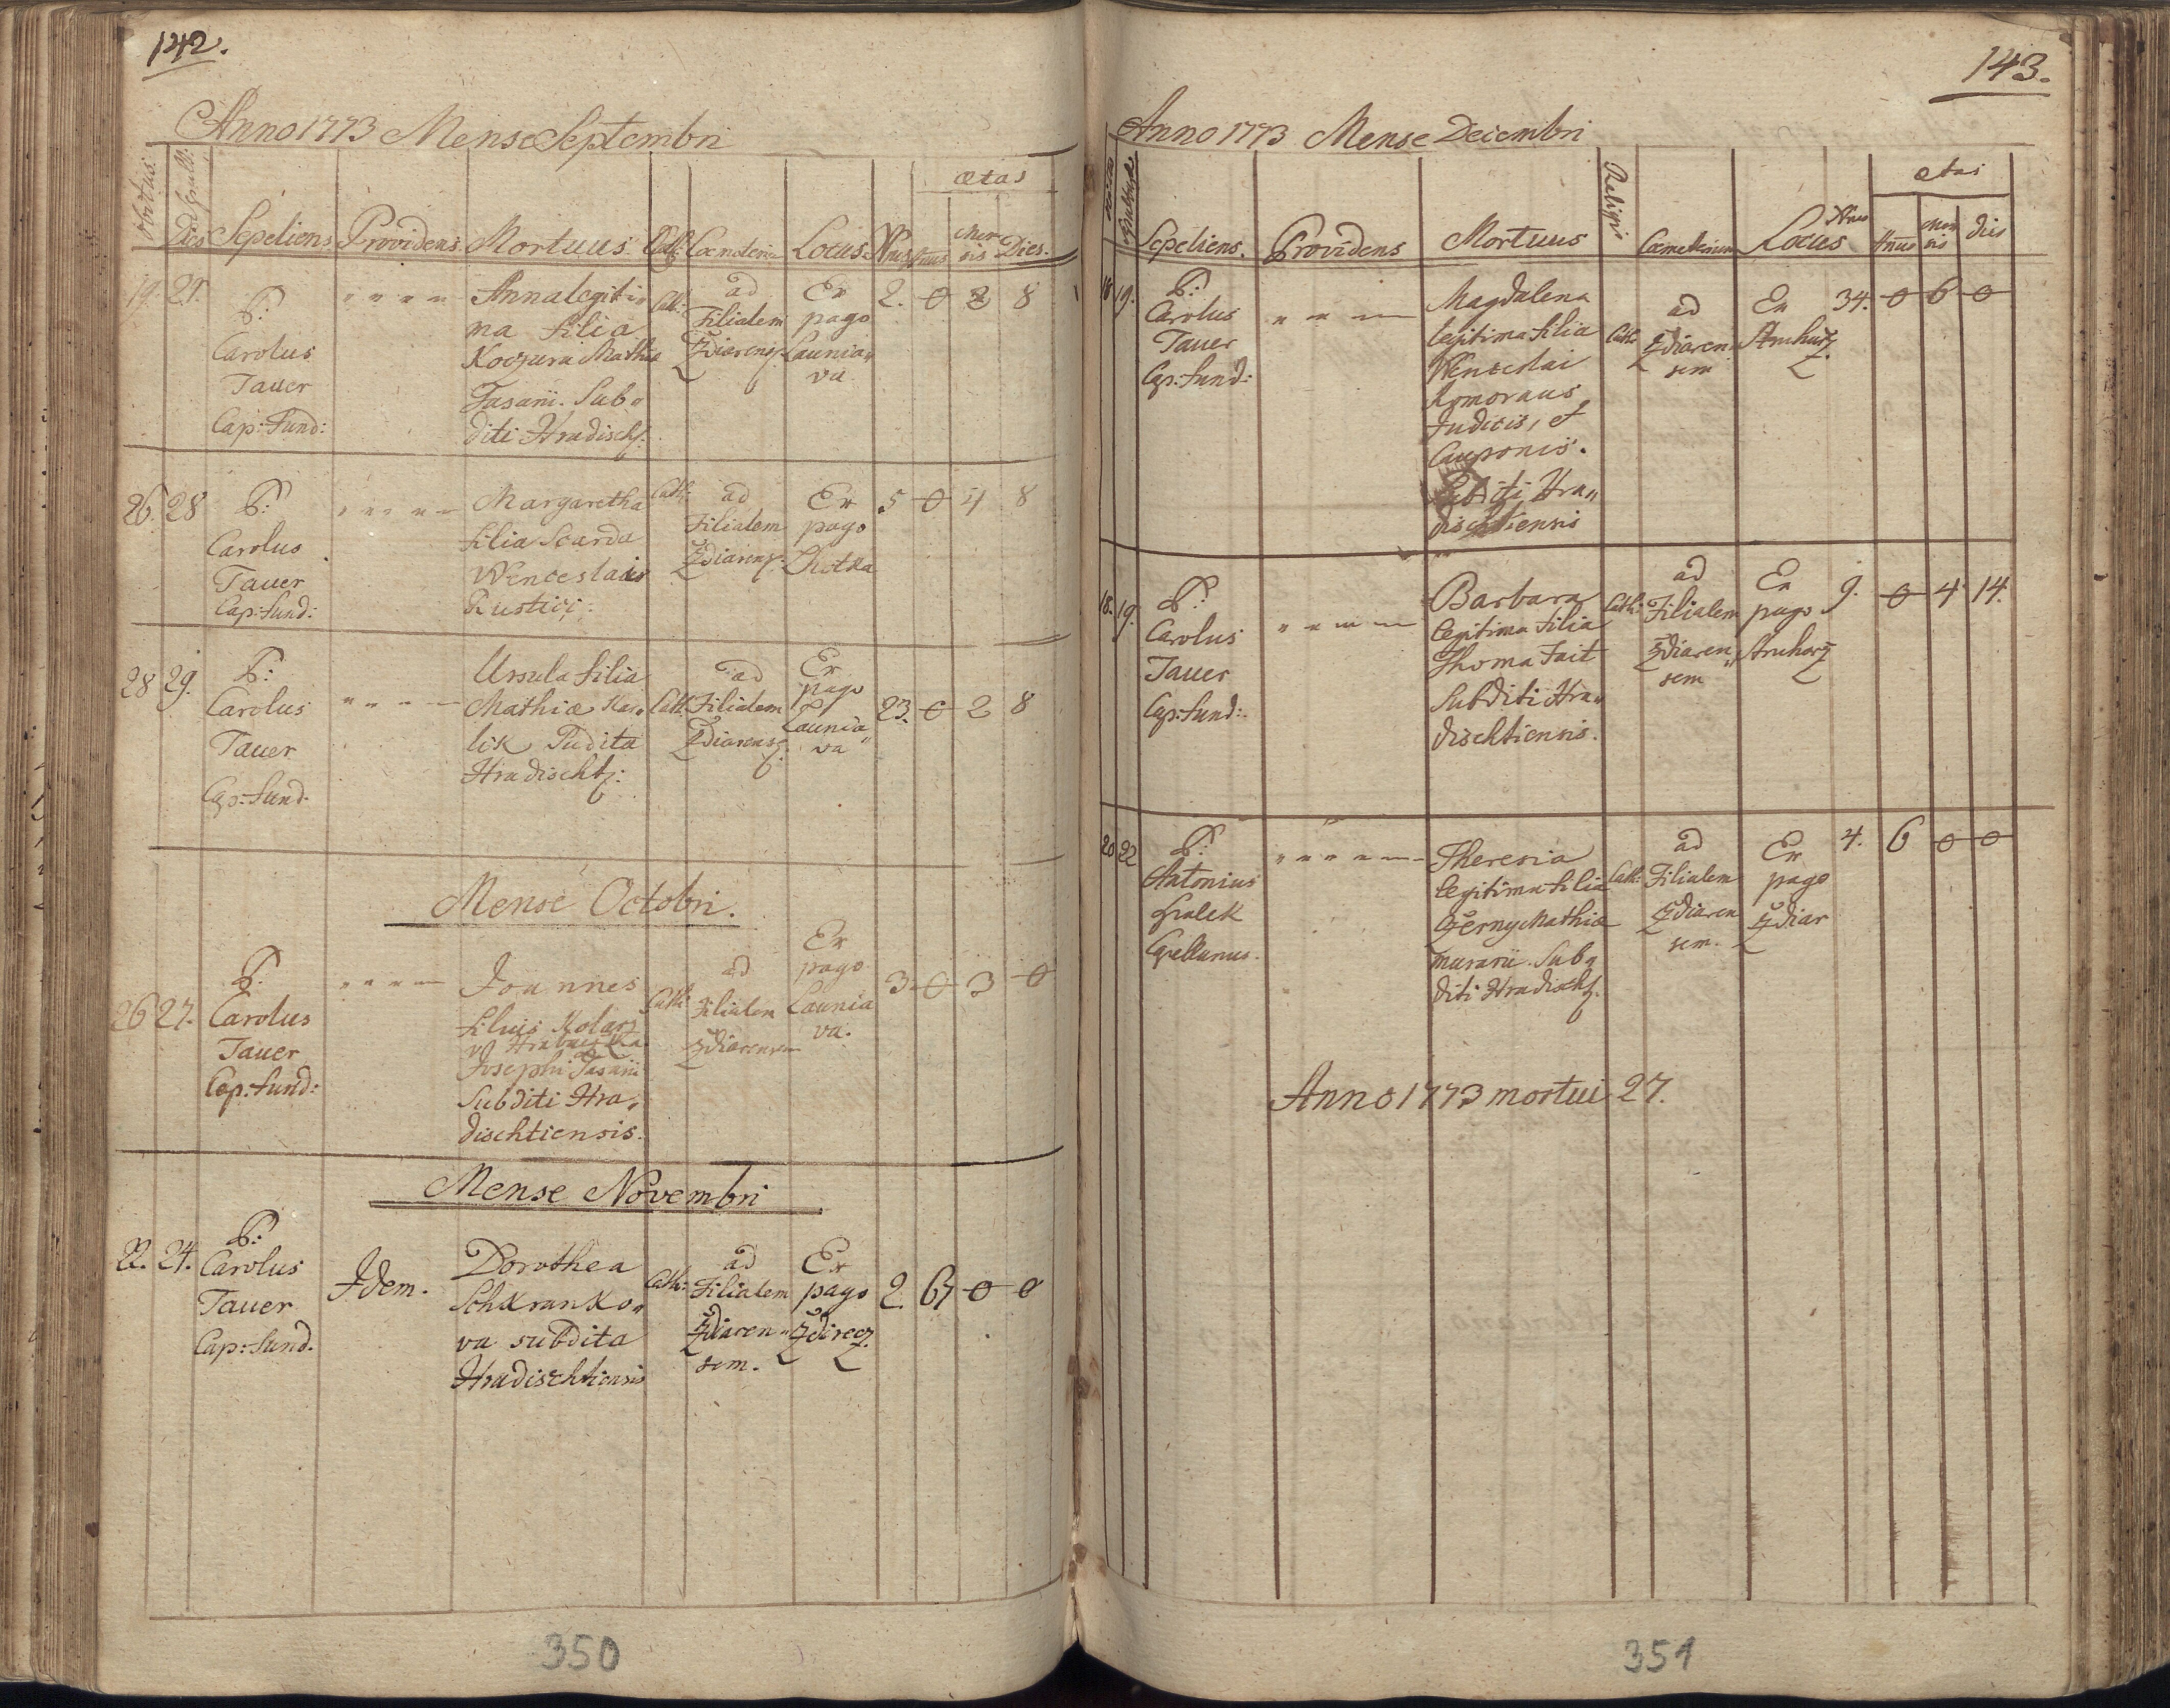 142.
Anno 1773 Mense Septembri
Obitus. Dies Sepult:
Sepeliens Providens Mortuus Cath: Coemeteriu Locus Nrus
ætas
Annus Mensis Dies.
19. 21.
P:
Carolus
Tauer
Cap: Fund:
Anna legiti„
ma filia
Koczura Mathiæ
Fasani. Sub„
diti Hradisch:
Cath:
ad
Filialem
Zdiarens:
Ex
pago
Launia„
va
2. 0 2 8
26. 28
P:
Carolus
Tauer
Cap: fund:
Margaretha
filia Scarda
Wenceslai
Rustici:
Cath:
ad
Filialem
Zdiarens:
Ex
pago
Lhotka
5 0 4 8
28 29.
P:
Carolus
Tauer
Cap: fund.
Ursula filia
Mathiæ Ka„
lik Pudita
Hradischt:
Cath.
ad
Filialem
Zdiarens:
Ex
pago
Launia„
va
23. 0 2 8
Mense Octobri.
26 27.
P.
Carolus
Tauer
Cap: fund:
Joannes
filuis Kolarz
v
Josephi Fasani
Subditi Hra„
dischtiensis.
Cath:
ad
Filialem
Zdiarensem
Ex
pago
Launia
va.
3. 0 3 0
Mense Novembri
22. 24.
P:
Carolus
Tauer
Cap: fund.
Idem.
Dorothea
Schkranko„
va subdita
Hradischtiensis
Cath:
ad
Filialem
Zdiaren„
sem.
Ex
pago
Zdirecz.
2. 67 0 0
350
143.
Anno 1773 Mense Decembri
Sepeliens. Providens Mortuus Religio Coemeterium Locus Nrus
ætas
Annus Mensis Dies
18 19.
P:
Carolus
Tauer
Cap: fund:
Magdalena
legitima filia
Wenceslai
Komoraus
Judicis, et
Cauponis.
Subditi Hra„
dischtiensis
Cath:
ad
Zdiaren„
sem
Ex
Struharz.
34. 0 6 0
18. 19.
P:
Carolus
Tauer
Cap: fund:
Barbara
legitima filia
Thoma Fait
Subditi Hra„
dischtiensis.
Cath:
ad
Filialem
Zdiaren„
sem
Ex
pago
Struharz
9. 0 4 14.
20 22
P:
Antonius
Spalek
Capellanus.
Theresia
legitima filia
Czerny Mathiæ
murarii. Sub„
diti Hradisch:
Cath:
ad
Filialem
Zdiaren
sem.
Ex
pago
Zdiar
4. 6 0 0
Anno 1773 mortui 27.
351